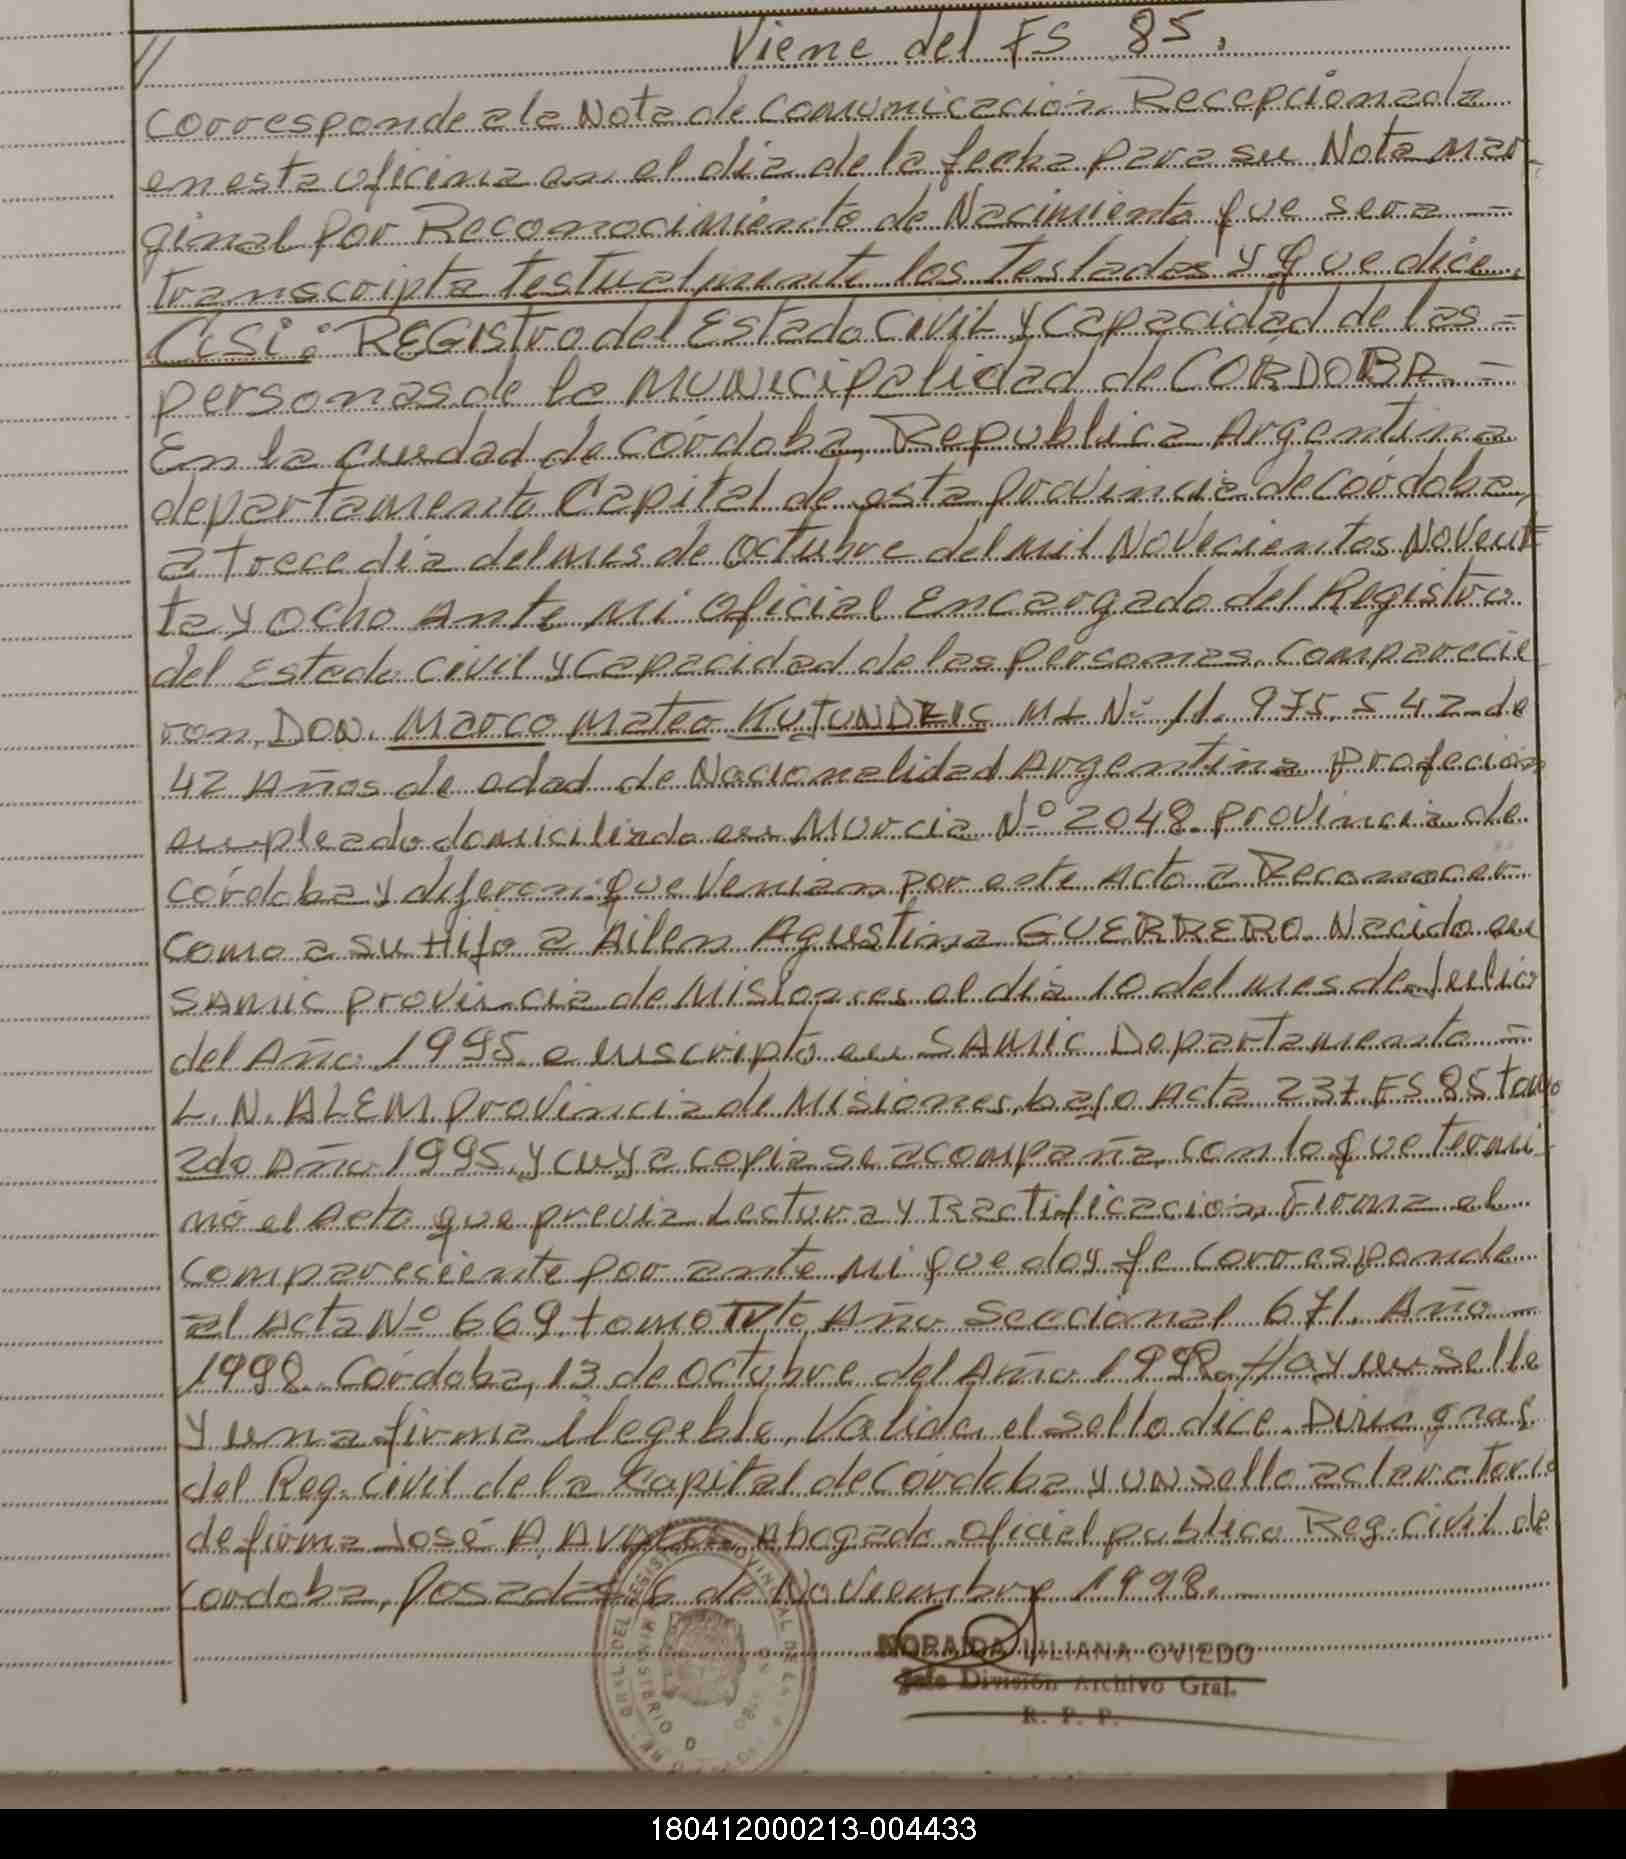 // Viene del FS 85.
corresponde a la Nota de comunicación Recepcionada
en esta oficina en el día de la fecha para su Nota mar-
ginal por Reconocimiento de Nacimiento que sera =
transcripta testualmente los Testados y que dice
Asi: REGIstro del Estado Civil y Capacidad de las =
personas de la MUNicipalidad de CORDOBA. =
En la ciudad de Córdoba, Republica Argentina
departamento Capital de esta provincia de Córdoba,
a trece día del mes de Octubre del mil Novecientos Noven
ta y Ocho Ante mi oficial Encargado del Registro
del Estado Civil y Capacidad de las personas. Comparecie
ron, DON. Marco Mateo MI Nº 11.975.542 de
42 Años de edad de Nacionalidad Argentina profeción
empleado domiciliado en Murcia Nº 2048. provincia de
Córdoba y que Venian por este Acto a Reconocer
como a su Hijo a Ailen Agustina GUERRERO. Nacido en
SAMIC provincia de Misiones el día 10 del mes de Julio
del Año 1995 e inscripto en SAMIC Departamento =
L. N. ALEM. provincia de Misiones, bajo Acta 237. FS 85 tomo
2do Año 1995, y cuya copia se acompaña con lo que termi-
nó el Acto que previa Lectura y Ractificación, Firma el
compareciente por ante mi que doy fe corresponde
al Acta Nº 669 tomo Año Seccional 671. Año
1998. Córdoba, 13 de octubre del Año 1998. Hay un sello
y una firma ilegeble. Valida, el sello dice. gral
del Reg. Civil de la Capital de Córdoba y UN sello aclaratorio
de firma José A. AVALOS, Abogado oficial publico Reg. Civil de
Cordoba, Posadas 6 de Noviembre 1998.
NORAIDA LILIANA OVIEDO
Jefe División Archivo Gral.
R. P. P.
180412000213-004433